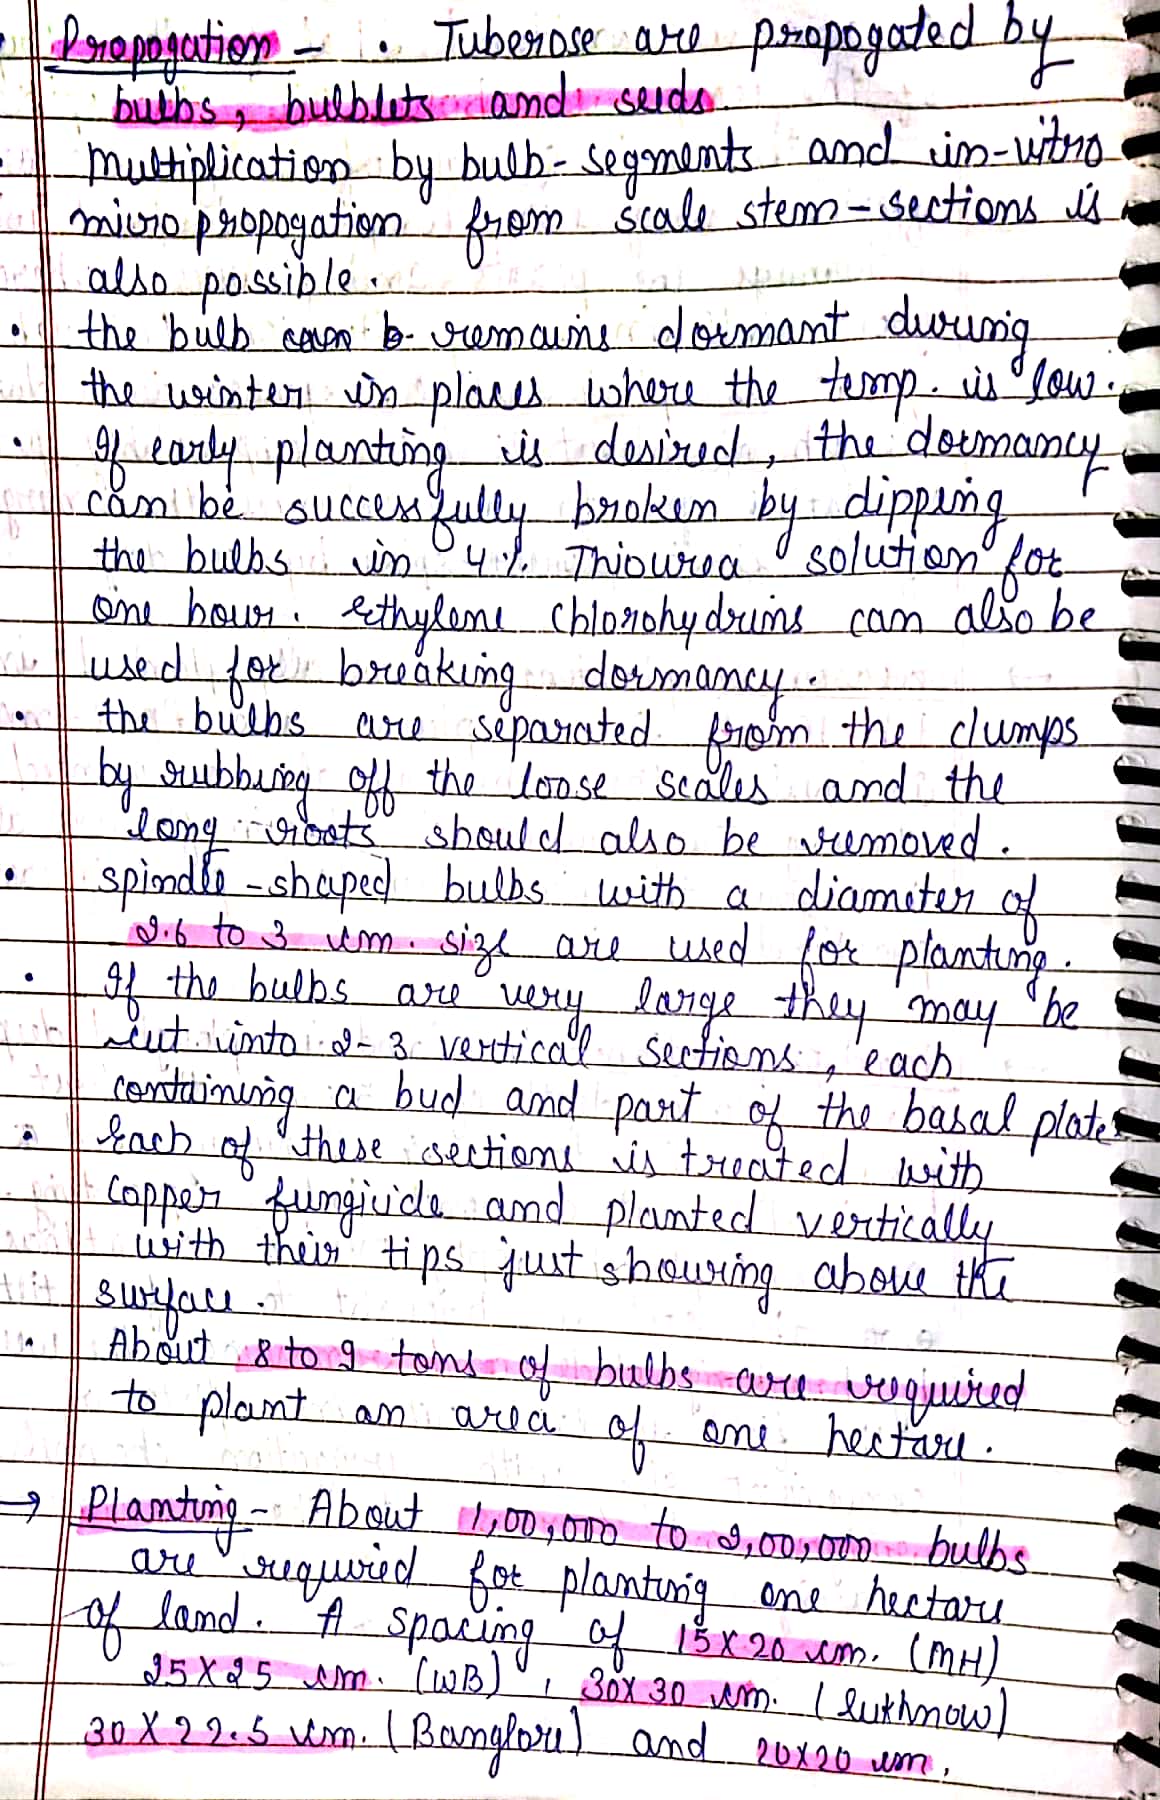 Propogation - • Tuberose are propogated by
bulbs, bulblets and seeds
multiplication by bulb-segments and in-vitro
micropropogation from scale stem-sections is
also possible.
• the bulb can b remains dormant during
the winter in places where the temp. is low.
• If early planting is desired, the dormancy
can be successfully broken by dipping
the bulbs in 4% Thiourea solution for
one hour. Ethylene chlorohydrins can also be
used for breaking dormancy.
• the bulbs are separated from the clumps
by rubbing off the loose scales and the
long roots should also be removed.
• spindle-shaped bulbs with a diameter of
2.6 to 3 cm. size are used for planting.
• If the bulbs are very large they may be
cut into 2-3 vertical sections, each
containing a bud and part of the basal plate
• Each of these sections is treated with
copper fungicide and planted vertically
with their tips just showing above the
surface.
• About 8 to 9 tons of bulbs are required
to plant an area of one hectare.
→ Planting - About 1,00,000 to 2,00,000 bulbs
are required for planting one hectare
of land. A spacing of 15X20 cm. (MH)
25X25 cm. (WB), 30X30 cm. (lukhnow)
30X22.5 cm. (Banglore) and 20X20 cm,